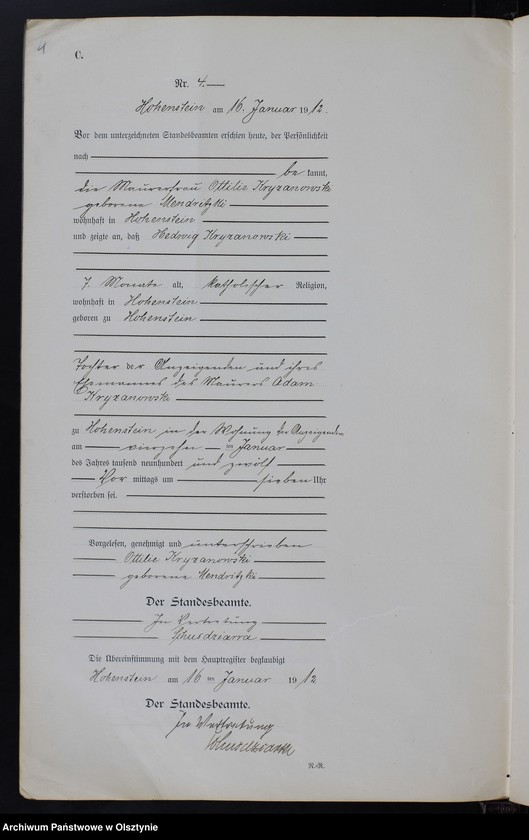 4
C.
Nr. 4.
Hohenstein am 16. Januar 1912.
Vor dem unterzeichneten Standesbeamten erschien heute, der Persönlichkeit
nach
be kannt,
die Maurerfrau Ottilie Kryzanowski
geborene Mendritzki
wohnhaft in Hohenstein
und zeigte an, daß Hedwig Kryzanowski
7 Monate alt, katholischer Religion,
wohnhaft in Hohenstein
geboren zu Hohenstein
Tochter der Anzeigenden und ihres
Ehemannes des Maurers Adam
Kryzanowski
zu Hohenstein in der Wohnung der Anzeigenden
am vierzehn ten Januar
des Jahres tausend neunhundert und zwölf
Vor mittags um sieben Uhr
verstorben sei.
Vorgelesen, genehmigt und unterschrieben
Ottilie Kryzanowski
geborene Mendritzki
Der Standesbeamte.
In Vertretung
Die Übereinstimmung mit dem Hauptregister beglaubigt
Hohenstein am 16 ten Januar 1912
Der Standesbeamte.
In Vertretung
N.-R.
Archiwum Państwowe w Olsztynie